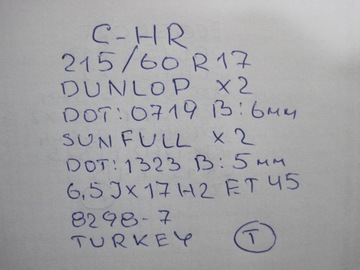 C-HR
215/60 R 17
DUNLOP x2
DOT: 0719 В: 6мм
SUNFULL x2
DOT: 1323 В: 5мм
6,5Jx17H2 ET45
8298-7
TURKEY T